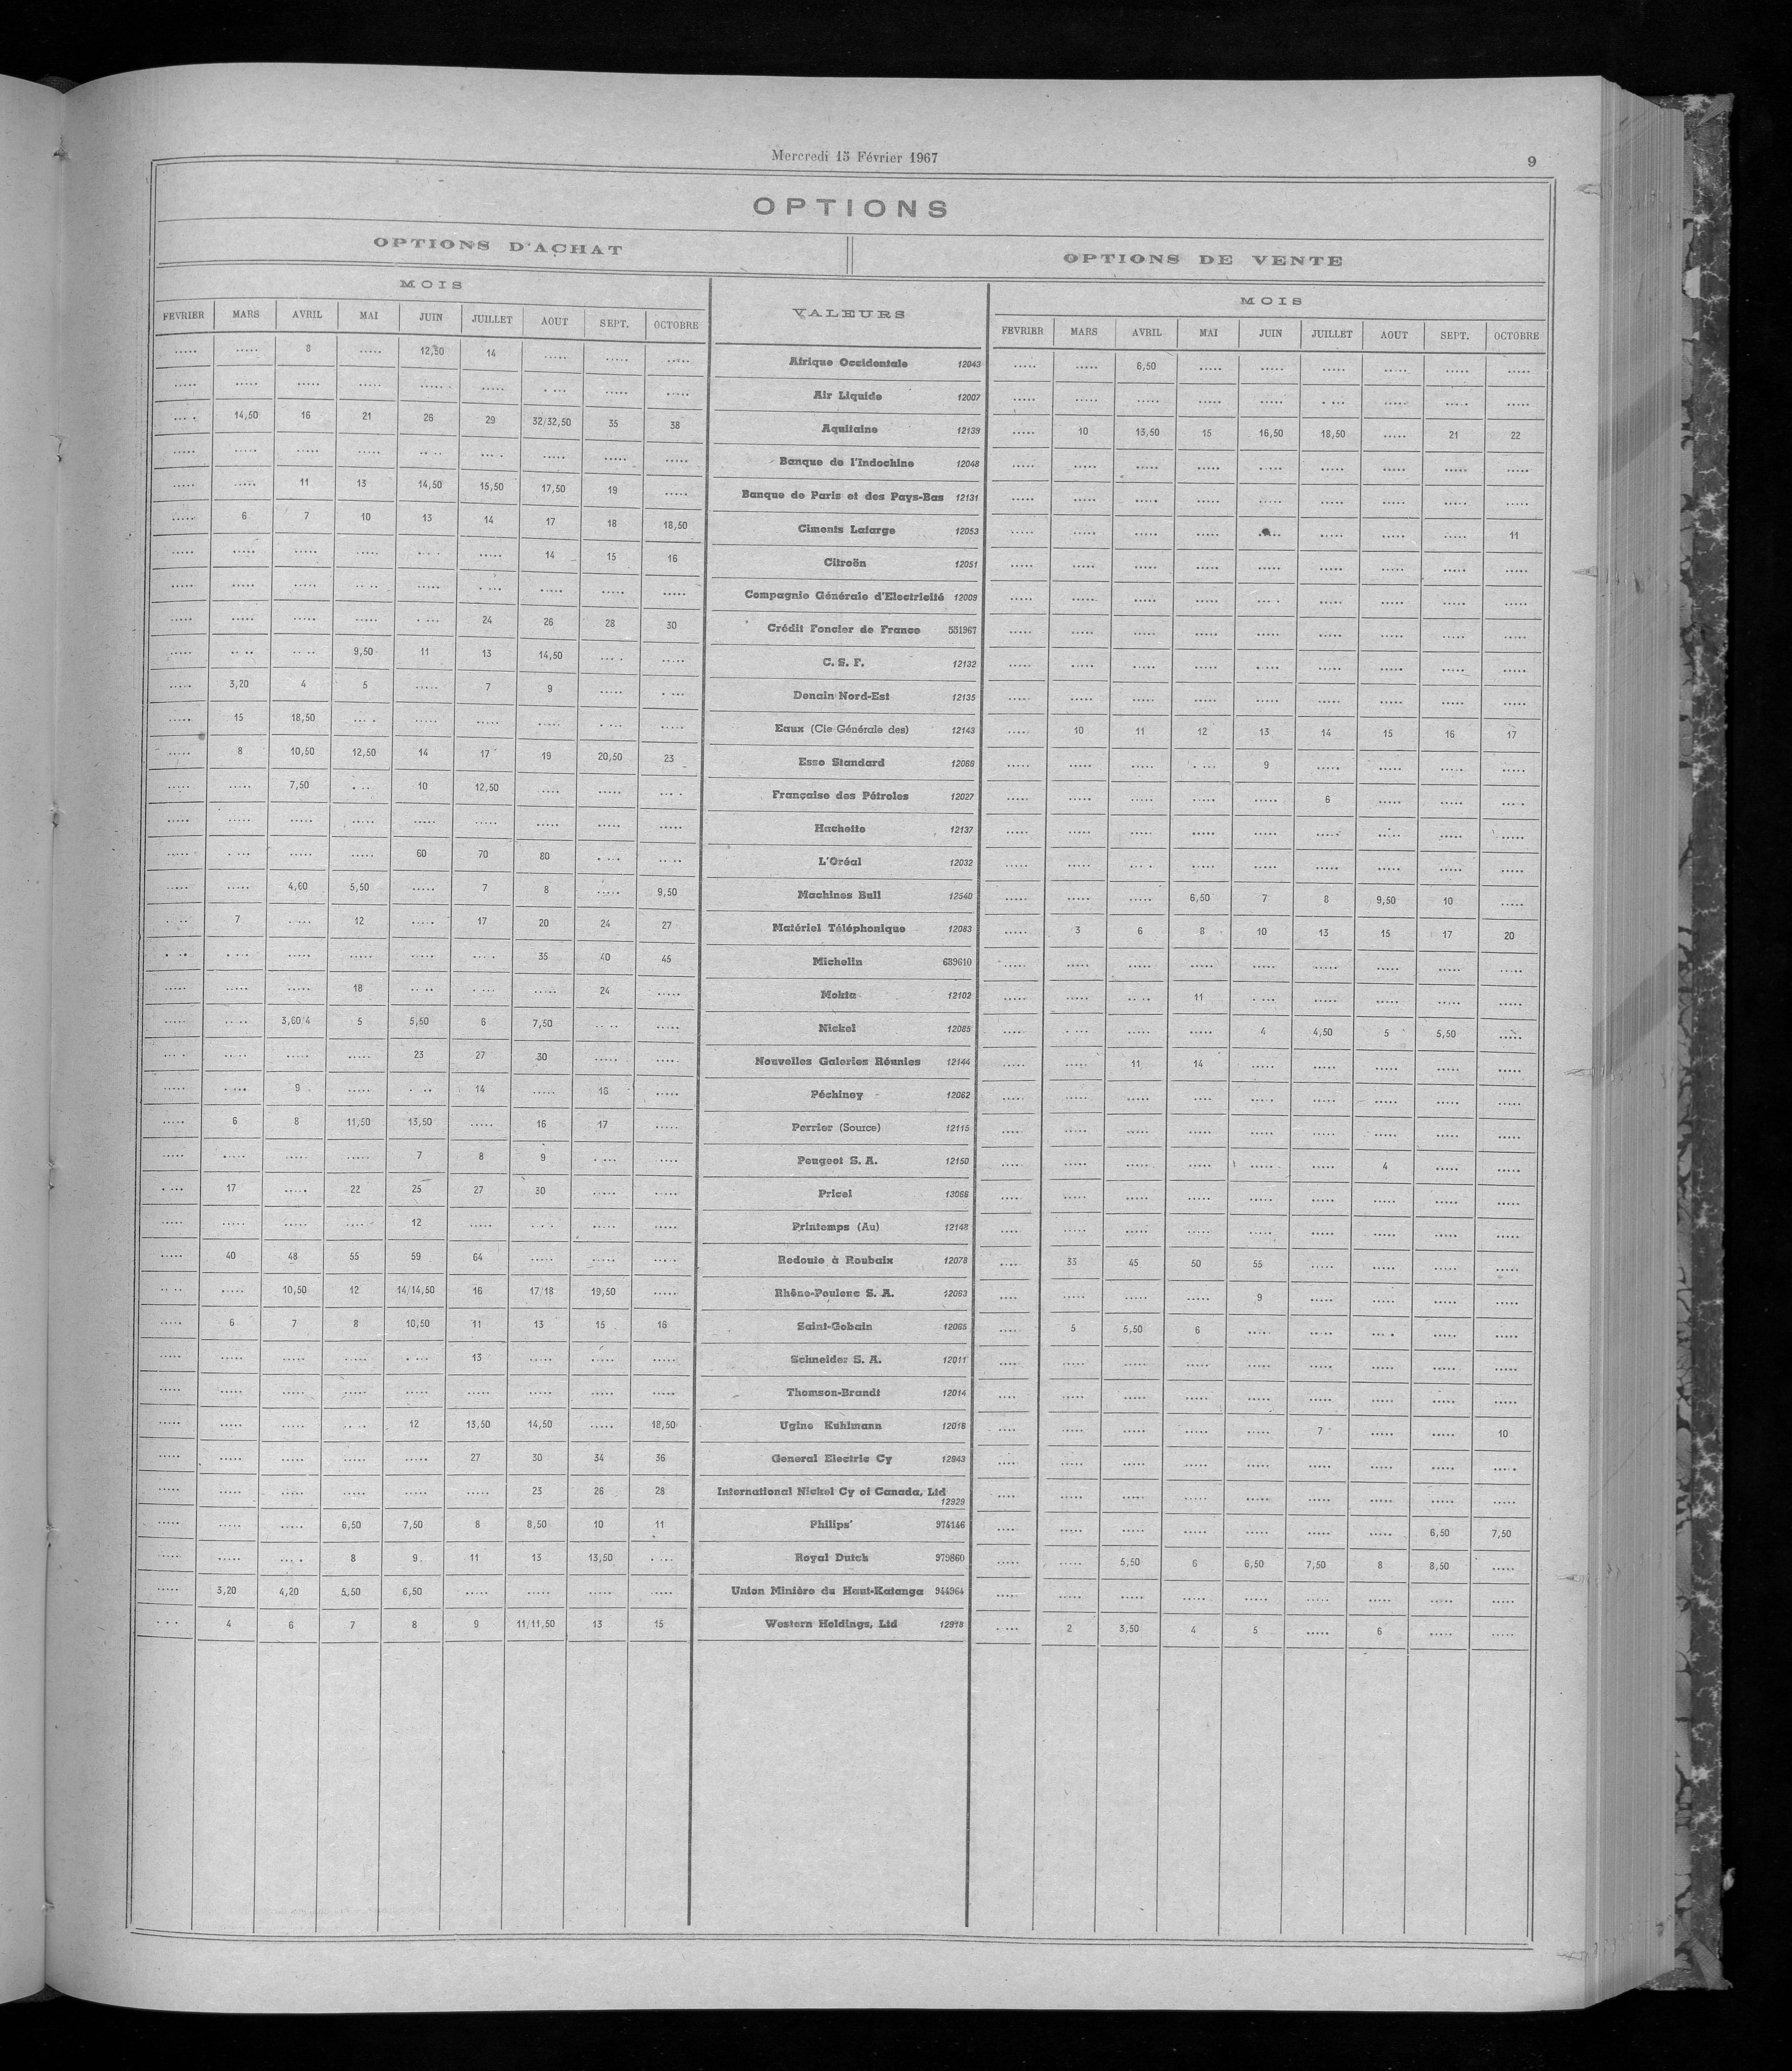 Mercredi 15 Février 1967
9
OPTIONS
OPTIONS D'ACHAT OPTIONS DE VENTE
MOIS VALEURS MOIS
FEVRIER MARS AVRIL MAI JUIN JUILLET AOUT SEPT. OCTOBRE FEVRIER MARS AVRIL MAI JUIN JUILLET AOUT SEPT. OCTOBRE
..... ..... 8 ..... 12,50 14 ..... ..... ..... Afrique Occidentale 12043 ..... ..... 6,50 ..... ..... ..... ..... ..... .....
..... ..... ..... ..... ..... ..... ..... ..... ..... Air Liquide 12007 ..... ..... ..... ..... ..... ..... ..... ..... .....
..... 14,50 16 21 26 29 32/32,50 35 38 Aquitaine 12139 ..... 10 13,50 15 16,50 18,50 ..... 21 22
..... ..... ..... ..... ..... ..... ..... ..... ..... Banque de l'Indochine 12048 ..... ..... ..... ..... ..... ..... ..... ..... .....
..... ..... 11 13 14,50 15,50 17,50 19 ..... Banque de Paris et des Pays-Bas 12131 ..... ..... ..... ..... ..... ..... ..... ..... .....
..... 6 7 10 13 14 17 18 18,50 Ciments Lafarge 12053 ..... ..... ..... ..... ..... ..... ..... ..... 11
..... ..... ..... ..... ..... ..... 14 15 16 Citroën 12051 ..... ..... ..... ..... ..... ..... ..... ..... .....
..... ..... ..... ..... ..... ..... ..... ..... ..... Compagnie Générale d'Electricité 12009 ..... ..... ..... ..... ..... ..... ..... ..... .....
..... ..... ..... ..... ..... 24 26 28 30 Crédit Foncier de France 551967 ..... ..... ..... ..... ..... ..... ..... ..... .....
..... ..... ..... 9,50 11 13 14,50 ..... ..... C. S. F. 12132 ..... ..... ..... ..... ..... ..... ..... ..... .....
..... 3,20 4 5 ..... 7 9 ..... ..... Denain Nord-Est 12135 ..... ..... ..... ..... ..... ..... ..... ..... .....
..... 15 18,50 ..... ..... ..... ..... ..... ..... Eaux (Cie Générale des) 12143 ..... 10 11 12 13 14 15 16 17
..... 8 10,50 12,50 14 17 19 20,50 23 Esso Standard 12066 ..... ..... ..... ..... 9 ..... ..... ..... .....
..... ..... 7,50 ..... 10 12,50 ..... ..... ..... Française des Pétroles 12027 ..... ..... ..... ..... ..... 6 ..... ..... .....
..... ..... ..... ..... ..... ..... ..... ..... ..... Hachette 12137 ..... ..... ..... ..... ..... ..... ..... ..... .....
..... ..... ..... ..... 60 70 80 ..... ..... L'Oréal 12032 ..... ..... ..... ..... ..... ..... ..... ..... .....
..... ..... 4,60 5,50 ..... 7 8 ..... 9,50 Machines Bull 12540 ..... ..... ..... 6,50 7 8 9,50 10 .....
..... 7 ..... 12 ..... 17 20 24 27 Matériel Téléphonique 12083 ..... 3 6 8 10 13 15 17 20
..... ..... ..... ..... ..... ..... 35 40 45 Michelin 689610 ..... ..... ..... ..... ..... ..... ..... ..... .....
..... ..... ..... 18 ..... ..... ..... 24 ..... Mokta 12102 ..... ..... ..... 11 ..... ..... ..... ..... .....
..... ..... 3,60/4 5 5,50 6 7,50 ..... ..... Nickel 12085 ..... ..... ..... ..... 4 4,50 5 5,50 .....
..... ..... ..... ..... 23 27 30 ..... ..... Nouvelles Galeries Réunies 12144 ..... ..... 11 14 ..... ..... ..... ..... .....
..... ..... 9 ..... ..... 14 ..... 16 ..... Péchiney 12062 ..... ..... ..... ..... ..... ..... ..... ..... .....
..... 6 8 11,50 13,50 ..... 16 17 ..... Perrier (Source) 12115 ..... ..... ..... ..... ..... ..... ..... ..... .....
..... ..... ..... ..... 7 8 9 ..... ..... Peugeot S. A. 12150 ..... ..... ..... ..... ..... ..... 4 ..... .....
..... 17 ..... 22 25 27 30 ..... ..... Pricel 13066 ..... ..... ..... ..... ..... ..... ..... ..... .....
..... ..... ..... ..... 12 ..... ..... ..... ..... Printemps (Au) 12148 ..... ..... ..... ..... ..... ..... ..... ..... .....
..... 40 48 55 59 64 ..... ..... ..... Redoute à Roubaix 12078 ..... 33 45 50 55 ..... ..... ..... .....
..... ..... 10,50 12 14/14,50 16 17/18 19,50 ..... Rhône-Poulenc S. A. 12063 ..... ..... ..... ..... 9 ..... ..... ..... .....
..... 6 7 8 10,50 11 13 15 16 Saint-Gobain 12065 ..... 5 5,50 6 ..... ..... ..... ..... .....
..... ..... ..... ..... ..... 13 ..... ..... ..... Schneider S. A. 12011 ..... ..... ..... ..... ..... ..... ..... ..... .....
..... ..... ..... ..... ..... ..... ..... ..... ..... Thomson-Brandt 12014 ..... ..... ..... ..... ..... ..... ..... ..... .....
..... ..... ..... ..... 12 13,50 14,50 ..... 18,50 Ugine Kuhlmann 12016 ..... ..... ..... ..... ..... 7 ..... ..... 10
..... ..... ..... ..... ..... 27 30 34 36 General Electric Cy 12843 ..... ..... ..... ..... ..... ..... ..... ..... .....
..... ..... ..... ..... ..... ..... 23 26 28 International Nickel Cy of Canada, Ltd 12929 ..... ..... ..... ..... ..... ..... ..... ..... .....
..... ..... ..... 6,50 7,50 8 8,50 10 11 Philips' 974146 ..... ..... ..... ..... ..... ..... ..... 6,50 7,50
..... ..... ..... 8 9 11 13 13,50 ..... Royal Dutch 979860 ..... ..... 5,50 6 6,50 7,50 8 8,50 .....
..... 3,20 4,20 5,50 6,50 ..... ..... ..... ..... Union Minière du Haut-Katanga 944964 ..... ..... ..... ..... ..... ..... ..... ..... .....
..... 4 6 7 8 9 11/11,50 13 15 Western Holdings, Ltd 12918 ..... 2 3,50 4 5 ..... 6 ..... .....